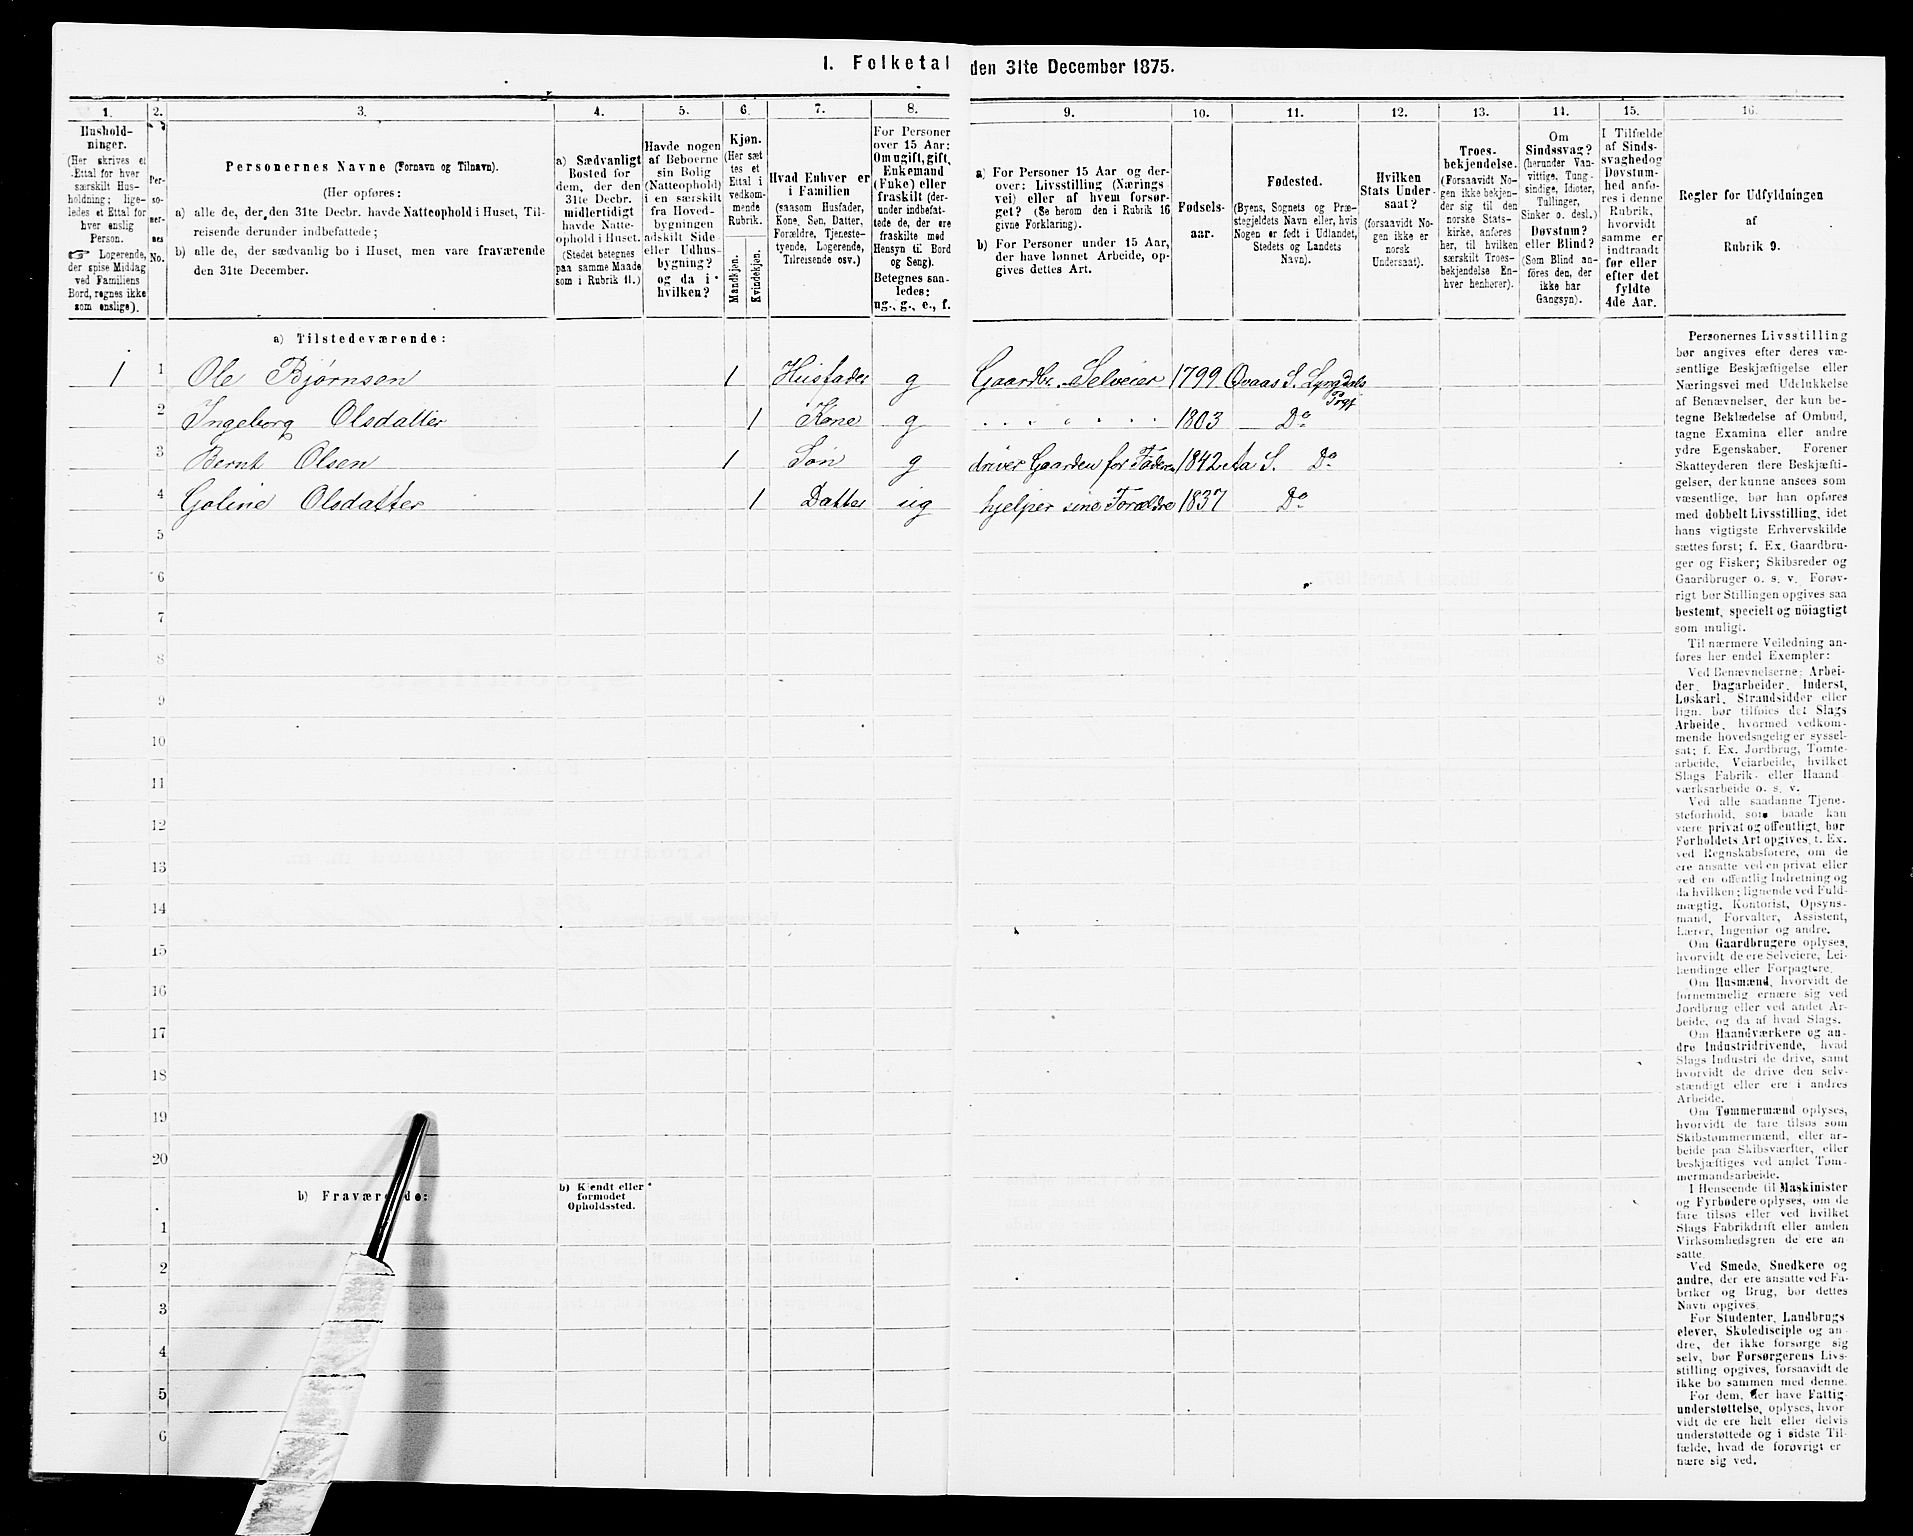 1. Folketal den 31te December 1875.
1. 2. 3. 4. 5. 6. 7. 8. 9. 10. 11. 12. 13. 14. 15. 16.
Hushold-
ninger.
(Her skrives et
Ettal for hver
særskilt Hus-
holdning; lige-
ledes et Ettal for
hver enslig
Person.
☞ Logerende,
der spise Middag
ved Familiens
Bord, regnes ikke
som enslige).
Per-
so-
ner-
nes
No.
Personernes Navne (Fornavn og Tilnavn).
(Her opføres:
a) alle de, der den 31te Decbr. havde Natteophold i Huset, Til-
reisende derunder indbefattede;
b) alle de, der sædvanlig bo i Huset, men vare fraværende
den 31te December.
a) Sædvanligt
Bosted for
dem, der den
31te Decbr.
midlertidigt
havde Natte-
ophold i Huset.
(Stedet betegnes
paa samme Maade
som i Rubrik 11.)
Havde nogen
af Beboerne
sin Bolig
(Natteophold)
i en særskilt
fra Hoved-
bygningen
adskilt Side
eller Udhus-
bygning?
og da i
hvilken?
Kjøn.
(Her sæt
tes et
Ettal i
vedkom-
mende
Rubrik.
Mandkjøn.
Kvindekjøn.
Hvad Enhver er
i Familien
(saasom Husfader,
Kone, Søn, Datter,
Forældre, Tjeneste-
tyende, Logerende,
Tilreisende osv.)
For Personer
over 15 Aar:
Om ugift, gift,
Enkemand
(Enke) eller
fraskilt (der-
under indbefat-
tede de, der ere
fraskilte med
Hensyn til Bord
og Seng).
Betegnes saa-
ledes:
ug., g., e., f.
a) For Personer 15 Aar og der-
over: Livsstilling (Nærings
vei) eller af hvem forsør-
get? (Se herom den i Rubrik 16
givne Forklaring).
b) For Personer under 15 Aar,
der have lønnet Arbeide, op-
gives dettes Art.
Fødsels-
aar.
Fødested.
(Byens, Sognets og Præ-
stegjeldets Navn eller, hvis
Nogen er født i Udlandet,
Stedets og Landets
Navn).
Hvilken
Stats Under-
saat?
(forsaavidt No-
gen ikke er
norsk
Undersaat).
Troes-
bekjendelse.
(Forsaavidt No-
gen ikke bekjen-
der sig til den
norske Stats-
kirke, anføres
her, til hvilken
særskilt Troes-
bekjendelse En-
hver henhører).
Om
Sindssvag?
(herunder Van-
vittige, Tung-
sindige, Idioter,
Tullinger,
Sinker o. desl.)
Døvstum?
eller Blind?
(Som Blind an-
føres den, der
ikke har
Gangsyn).
I Tilfælde
af Sinds-
svaghed og
Døvstum-
hed anfø-
res i denne
Rubrik,
hvorvidt
samme er
indtraadt
før eller
efter det
fyldte
4de Aar.
Regler for Udfyldningen
af
Rubrik 9.
a) Tilstedeværende:
1 1 Ole Bjørnsen 1 Husfader g Gaardbr. Selveier 1799 Qvaas S. Lyngdals Prgj
2 Ingeborg Olsdatter 1 Kone g 1803 Do
3 Bernt Olsen 1 Søn g driver Gaarden for Faderen 1842 Aa S. Do
4 Goline Olsdatter 1 Datter ug hjelper sine Forældre 1837 Do
5
6
7
8
9
10
11
12
13
14
15
16
17
18
19
20
b) Fraværende:
b) Kjendt eller
formodet
Opholdssted.
1
2
3
4
5
6
Personernes Livsstilling
bør angives efter deres væ-
sentlige Beskjæftigelse eller
Næringsvei med Udelukkelse
af Benævnelser, der kun be-
tegne Beklædelse af Ombud,
tagne Examina eller andre
ydre Egenskaber. Forener
Skatteyderen flere Beskjæfti-
gelser, der kunne ansees som
væsentlige, bør han opføres
med dobbelt Livsstilling, idet
hans vigtigste Erhvervskilde
sættes først; f. Ex. Gaardbru-
ger og Fisker; Skibsreder og
Gaardbruger o. s. v. Forøv-
rigt bør Stillingen opgives saa
bestemt, specielt og nöiagtigt
som muligt.
Til nærmere Veiledning an-
føres her endel Exempler:
Ved Benævnelserne: Arbei-
der, Dagarbeider, Inderst,
Løskarl, Strandsidder eller
lign. bør tilføies det Slags
Arbeide, hvormed vedkom-
mende hovedsagelig er syssel-
sat; f. Ex. Jordbrug, Tomte-
arbeide, Veiarbeide, hvilket
Slags Fabrik- eller Haand-
værksarbeide o. s. v.
Ved alle saadanne Tjene-
steforhold, som baade kan
være privat og offentligt, bør
Forholdets Art opgives, t. Ex.
ved Regnskabsførere, om de
ere ansatte ved en privat eller
ved en offentlig Indretning og
da hvilken; lignende ved Fuld-
mægtig, Kontorist, Opsyns-
mand, Forvalter, Assistent,
Lærer, Ingeniør og andre.
Om Gaardbrugere oplyses,
hvorvidt de ere Selveiere, Lei-
lændinge eller Forpagtere.
Om Husmænd, hvorvidt de
fornemmelig ernære sig ved
Jordbrug eller ved andet Ar-
beide, og da af hvad Slags.
Om Haandværkere og an-
dre Industridrivende, hvad
Slags Industri de drive, samt
hvorvidt de drive den selv-
stændigt eller ere i andres
Arbeide.
Om Tømmermænd oplyses,
hvorvidt de fare tilsøs som
Skibstømmermænd, eller ar-
beide paa Skibsværfter, eller
beskjæftiges ved andet Tøm-
mermandsarbeide.
I Henseende til Maskinister
og Fyrbødere oplyses, om de
fare tilsøs eller ved hvilket
Slags Fabrikdrift eller anden
Virksomhedsgren de ere an-
satte.
Ved Smede, Snedkere og
andre, der ere ansatte ved Fa-
briker og Brug, bør dettes
Navn opgives.
For Studenter, Landbrugs
elever, Skoledisciple og an-
dre, der ikke forsørge sig
selv, bør Forsørgerens Livs-
stilling opgives, forsaavidt de
ikke bo sammen med denne.
For dem, der have Fattig-
understøttelse, oplyses, hvor-
vidt de ere helt eller delvis
understøttede og i sidste Til-
fælde, hvad de forøvrigt er
nære sig ved.